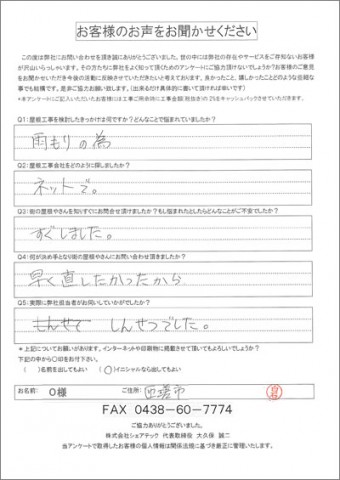 お客様のお声をお聞かせください
この度は弊社にお問い合わせを頂き誠にありがとうございました。世の中には弊社の存在やサービスをご存知ないお客様
が沢山いらっしゃいます。その方たちに弊社をよく知って頂くためのアンケートにご協力頂けないでしょうか?お客様のご意見
をお聞かせいただき今後の活動に反映させていただきたいと考えております。良かったこと、嬉しかったことどのような些細な
事でも結構です。是非ご協力お願い致します。(出来るだけ具体的に書いて頂ければ幸いです)
*本アンケートにご記入いただいたお客様には工事ご用命時に工事金額(税抜き)の2%をキャッシュバックさせていただきます。
Q1:屋根工事を検討したきっかけは何ですか?どんなことで悩まれていましたか?
雨もりの為
Q2:屋根工事会社をどのように探しましたか?
ネットで。
Q3:街の屋根やさんを知りすぐにお問合せ頂けましたか?もし悩まれたとしたらどんなことがご不安でしたか?
すぐしました。
Q4:何が決め手となり街の屋根やさんにお問い合わせ頂きましたか?
早く直したかったから
Q5:実際に弊社担当者がお伺いしていかがでしたか?
しんせつでした。
* 上記についてお願いがあります。インターネットや印刷物に掲載させて頂いてもよろしいでしょうか?
下記の中から○印をお付け下さい。
( )名前を出してもよい (○)イニシャルなら出してもよい
お名前: O様 ご住所: 市
FAX 0438-60-7774
ご協力ありがとうございました。
株式会社シェアテック 代表取締役 大久保 誠二
当アンケートで取得したお客様の個人情報は関係法規に基づき厳正に管理いたします。